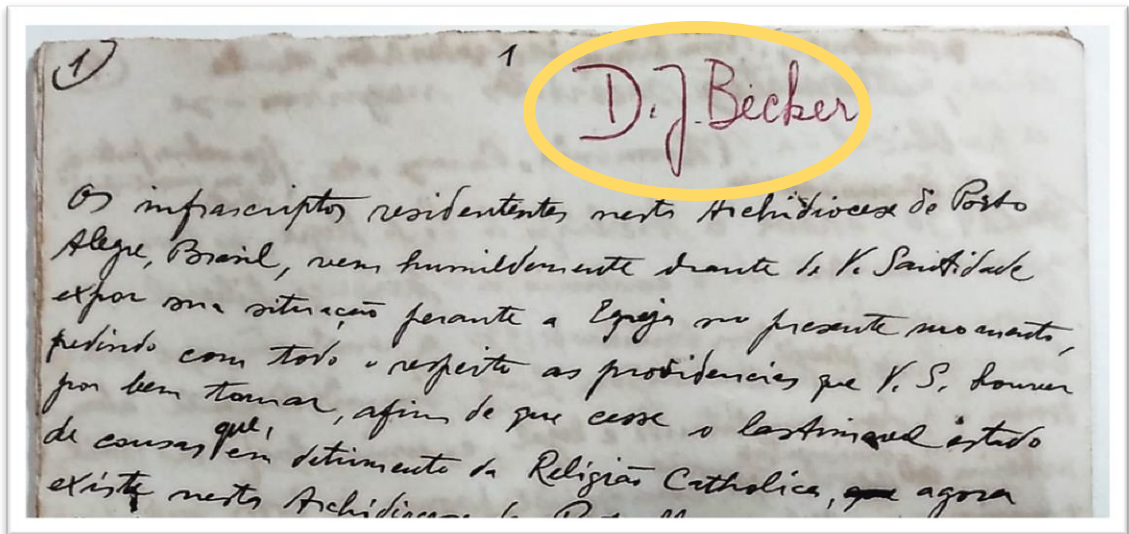 1 1
D. J. Becker
Os infrascriptos residententes nesta Archidiocese de Porto
Alegre, Brasil, vem humildemente deante de V. Santidade
expor sua situação perante a Egreja no presente momento,
pedindo com todo o respeito as providencias que V. S. houver
por bem tomar, afim de que cesse o lastimavel estado
de cousas que, em detrimento da Religião Catholica, que agora
existe nesta Archidiocese de